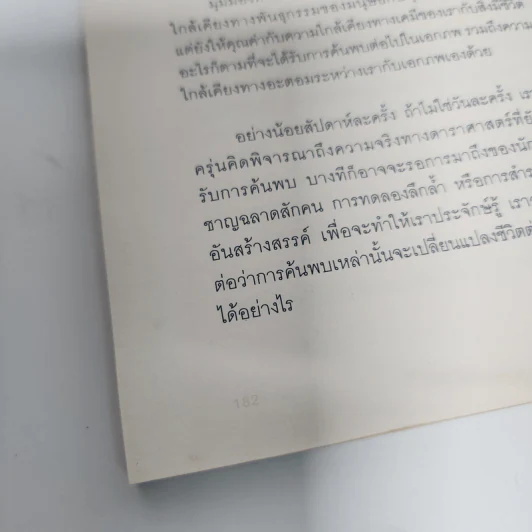 ใกล้เคียงทางพันธุกรรมของมนุษย์
แต่ยังให้คุณค่ากับความใกล้เคียงทางเคมีของเรากับสิ่งมีชีวิต
อะไรก็ตามที่จะได้รับการค้นพบต่อไปในเอกภพ รวมถึงความ
ใกล้เคียงทางอะตอมระหว่างเรากับเอกภพเองด้วย
อย่างน้อยสัปดาห์ละครั้ง ถ้าไม่ใช่วันละครั้ง เรา
ครุ่นคิดพิจารณาถึงความจริงทางดาราศาสตร์ที่
รับการค้นพบ บางทีก็อาจจะรอการมาถึงของ
ชาญฉลาดสักคน การทดลองลึกล้ำ หรือการ
อันสร้างสรรค์ เพื่อจะทำให้เราประจักษ์รู้
ต่อว่าการค้นพบเหล่านั้นจะเปลี่ยนแปลงชีวิต
ได้อย่างไร
182